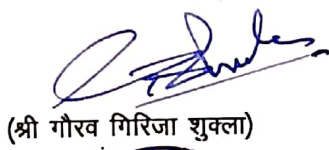 (श्री गौरव गिरिजा शुक्ला)